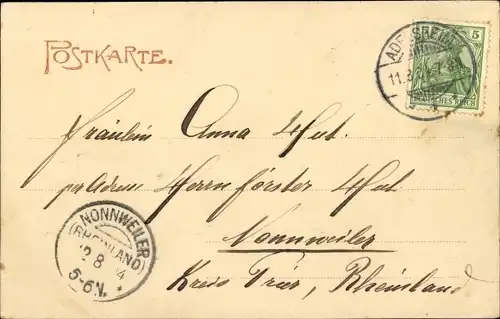 POSTKARTE.
ADELSHEIM
5
DEUTSCHES REICH
Fräulein Anna Hut.
per Adresse Herrn Förster Hut
Nonnweiler
Kreis Trier, Rheinland
NONNWEILER
(RHEINLAND)
12 8 04
5-6N.